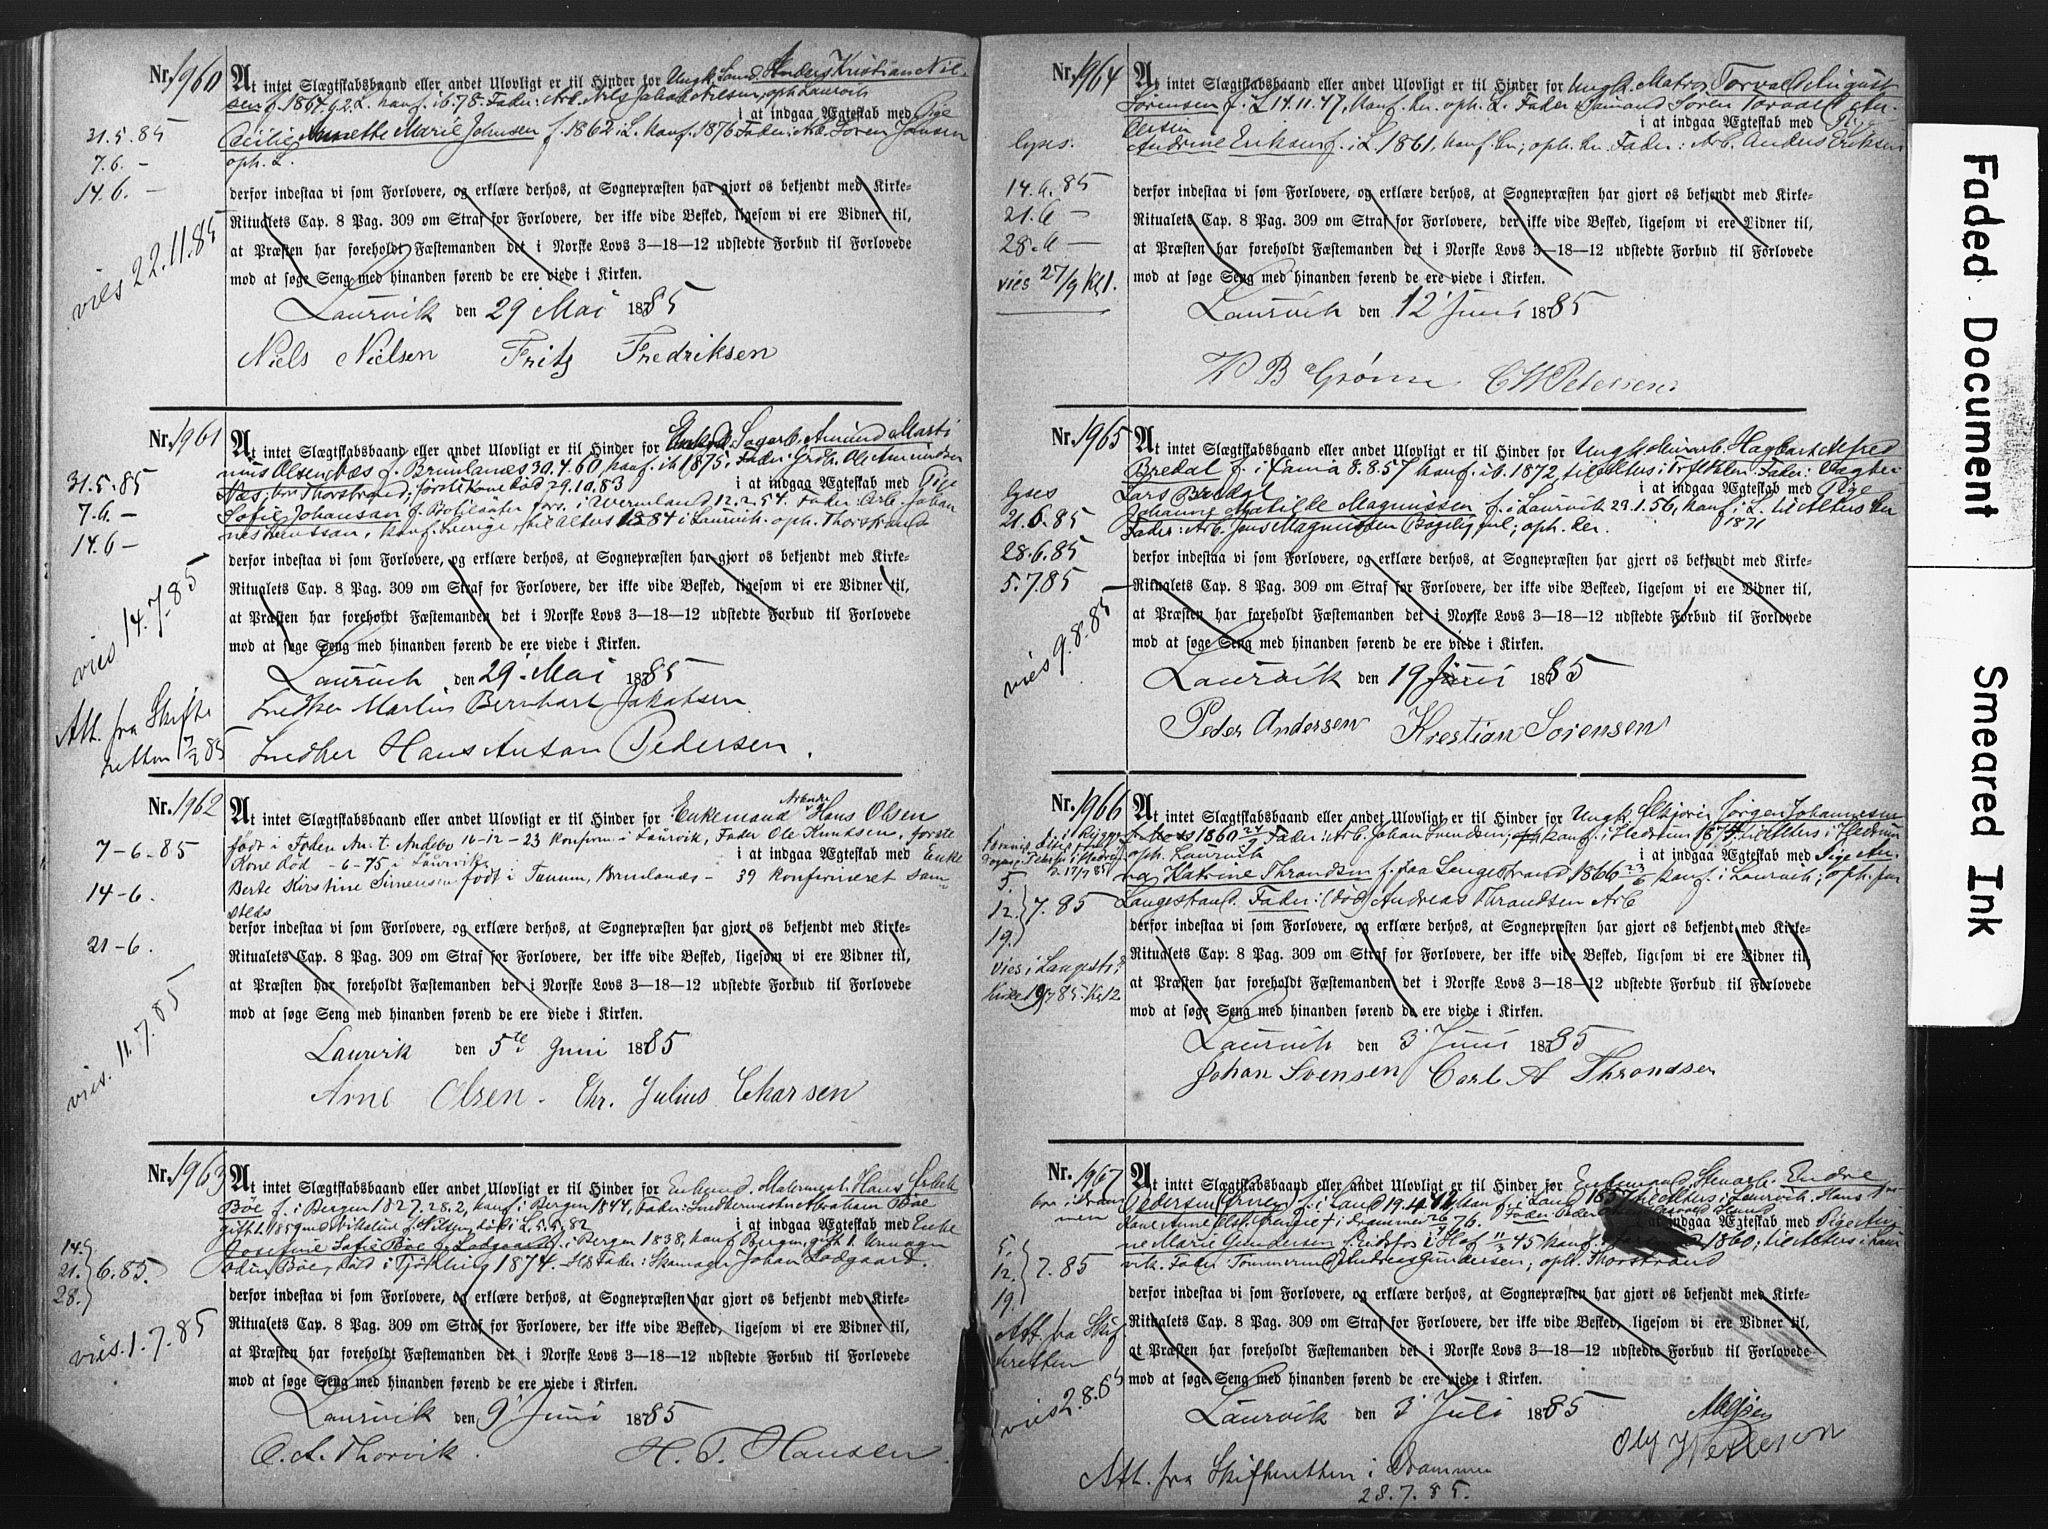 Nr. 1960 At intet Slægtskabsbaand eller andet Ulovligt er til Hinder for Ungk. Sømd. Anders Kristian Niel-
sen f. 1864 conf. 78. Fader: Arb. Niels Jakob Nilsen, oph. Laurvik
i at indgaa Ægteskab med Pige
Cecilie Annette Marie Johnsen f. 1862 i L. konf. 1876 Fader: Arb. Søren Jonsen
oph. L.
31.5.85
7.6. —
14.6. —
vies 22.11.85
derfor indestaa vi som Forlovere, og erklære derhos, at Sognepræsten har gjort os bekjendt med Kirke-
Ritualets Cap. 8 Pag. 309 om Straf for Forlovere, der ikke vide Besked, ligesom vi ere Vidner til,
at Præsten har foreholdt Fæstemanden det i Norske Lovs 3—18—12 udstedte Forbud til Forlovede
mod at søge Seng med hinanden førend de ere viede i Kirken.
Laurvik den 29 Mai 1885
Niels Nielsen Fritz Fredriksen
Nr. 1961 At intet Slægtskabsbaand eller andet Ulovligt er til Hinder for Enkem. Sagarb. Amund Marti
nius Olsen Næs f. Brunlanes 30.4.60 konf. ib. 1875, Fader: Grdb. Ole Amundsen
Næs, bor Thorstrand, første Kone død 29.10.83 i at indgaa Ægteskab med Pige
Sofie Johansen f. Vermland 12.2.54. Fader: Arb. Johan
konf. Sverige, til Alters 1884 i Laurvik. oph. Thorstrand
31.5.85
7.6 —
14.6 —
vies 14.7.85
Att. fra Skifte
retten 7/7 85
derfor indestaa vi som Forlovere, og erklære derhos, at Sognepræsten har gjort os bekjendt med Kirke-
Ritualets Cap. 8 Pag. 309 om Straf for Forlovere, der ikke vide Besked, ligesom vi ere Vidner til,
at Præsten har foreholdt Fæstemanden det i Norske Lovs 3—18—12 udstedte Forbud til Forlovede
mod at søge Seng med hinanden førend de ere viede i Kirken.
Laurvik den 29 Mai 1885
Snedker Martin Bernhart Jakobsen
Snedker Hans Anton Pedersen.
Nr. 1962 At intet Slægtskabsbaand eller andet Ulovligt er til Hinder for Enkemand Arbeider Hans Olsen
født i Foden An. t. Andebo 16-12-23 konfirm. i Laurvik, Fader Ole Knudsen, første
Kone død -6-75 i Laurvik i at indgaa Ægteskab med Enke
Berte Kirstine Simensen født i Tanum, Brunlanes - 39 konfirmeret sam-
steds
7-6-85
14-6.
21-6.
vies. 11.7.85
derfor indestaa vi som Forlovere, og erklære derhos, at Sognepræsten har gjort os bekjendt med Kirke-
Ritualets Cap. 8 Pag. 309 om Straf for Forlovere, der ikke vide Besked, ligesom vi ere Vidner til,
at Præsten har foreholdt Fæstemanden det i Norske Lovs 3—18—12 udstedte Forbud til Forlovede
mod at søge Seng med hinanden førend de ere viede i Kirken.
Laurvik den 5te Juni 1885
Arne Olsen. Chr. Julius Charsen
Nr. 1963 At intet Slægtskabsbaand eller andet Ulovligt er til Hinder for Enkemd. Malermest. Hans
Bøe f. i Bergen 1827.28.2, konf. i Bergen 1844, Fader: Snedkermester Abraham Bøe
gift 1. 1859 Nilsen, død i L. 5.5.82 i at indgaa Ægteskab med Enke
Josefine Sofie Bøe f. Lodgaard f. i Bergen 1838, konf. Bergen, gift 1. Urmager
Odin Bøe, død i Tjølling 1874. Fader: Skomager Johan Lodgaard.
14.
21. 6.85.
28.
vies. 1.7.85
derfor indestaa vi som Forlovere, og erklære derhos, at Sognepræsten har gjort os bekjendt med Kirke-
Ritualets Cap. 8 Pag. 309 om Straf for Forlovere, der ikke vide Besked, ligesom vi ere Vidner til,
at Præsten har foreholdt Fæstemanden det i Norske Lovs 3—18—12 udstedte Forbud til Forlovede
mod at søge Seng med hinanden førend de ere viede i Kirken.
Laurvik den 9 Juni 1885
C. A. Thorvik. H. T. Hansen.
Nr. 1964 At intet Slægtskabsbaand eller andet Ulovligt er til Hinder for Ungk. Matros Torvald August
Sørensen f. i L. 14.11.47, konf. her, oph. L. Fader: Sømand Søren Torvald An-
dersen i at indgaa Ægteskab med Pige
Andrine Eriksen f. i L. 1861, konf. her; oph. her. Fader: Arb. Anders Eriksen
lyses.
14.6.85
21.6 —
28.6 —
vies 27/9 Kl 1.
derfor indestaa vi som Forlovere, og erklære derhos, at Sognepræsten har gjort os bekjendt med Kirke-
Ritualets Cap. 8 Pag. 309 om Straf for Forlovere, der ikke vide Besked, ligesom vi ere Vidner til,
at Præsten har foreholdt Fæstemanden det i Norske Lovs 3—18—12 udstedte Forbud til Forlovede
mod at søge Seng med hinanden førend de ere viede i Kirken.
Laurvik den 12 Juni 1885
B Grønn C W Petersen
Nr. 1965 At intet Slægtskabsbaand eller andet Ulovligt er til Hinder for Ungk. Hagbart Alfred
Bredal f. i 8.8.57 konf. ib. 1872, til Alters Fader:
Lars Bredal i at indgaa Ægteskab med Pige
Johanne Matilde Magnussen f. i Laurvik 29.1.56, konf. i L. 1871 til Alters her
Fader: Arb. Jens Magnussen; oph. her.
lyses
21.6.85
28.6.85
5.7.85
vies 9.8.85
derfor indestaa vi som Forlovere, og erklære derhos, at Sognepræsten har gjort os bekjendt med Kirke-
Ritualets Cap. 8 Pag. 309 om Straf for Forlovere, der ikke vide Besked, ligesom vi ere Vidner til,
at Præsten har foreholdt Fæstemanden det i Norske Lovs 3—18—12 udstedte Forbud til Forlovede
mod at søge Seng med hinanden førend de ere viede i Kirken.
Laurvik den 19 Juni 1885
Peder Andersen Krestian Sørensen
Nr. 1966 At intet Slægtskabsbaand eller andet Ulovligt er til Hinder for Ungk. Jørgen Johannesen
1860 Fader: Arb. Johan konf. i Hedrum 187 til Alters i Hedrum
oph. Laurvik i at indgaa Ægteskab med Pige An-
na Katrine Thrandsen f. paa Langestrand 1866 konf. i Laurvik; oph. paa
Langestrand. Fader: (død) Andreas Thrandsen Arb
5.
12. 7.85
19.
vies i Langestr.
Kirke 19/7 85. Kl 12
derfor indestaa vi som Forlovere, og erklære derhos, at Sognepræsten har gjort os bekjendt med Kirke-
Ritualets Cap. 8 Pag. 309 om Straf for Forlovere, der ikke vide Besked, ligesom vi ere Vidner til,
at Præsten har foreholdt Fæstemanden det i Norske Lovs 3—18—12 udstedte Forbud til Forlovede
mod at søge Seng med hinanden førend de ere viede i Kirken.
Laurvik den 3 Juni 1885
Johan Svensen Carl A Thrandsen
Nr. 1967 At intet Slægtskabsbaand eller andet Ulovligt er til Hinder for Enkemand Stenarb. Endre
Pedersen f. i Land 19.4.42, konf. i Land 1857 til Alters i Laurvik. Hans 1ste
Kone Anne † i Drammen 76. Fader: Peder i at indgaa Ægteskab med Pige An-
ne Marie Gundersen f. Eidsfos i Hof 11/3 45 konf. 1860; til Alters i Laur
vik. Fader: Tømmerm. Andreas Gundersen; oph. Thorstrand
bor i Dram
men
5.
12. 7.85
19.
Att. fra Skif
teretten
vies 2.8.85
derfor indestaa vi som Forlovere, og erklære derhos, at Sognepræsten har gjort os bekjendt med Kirke-
Ritualets Cap. 8 Pag. 309 om Straf for Forlovere, der ikke vide Besked, ligesom vi ere Vidner til,
at Præsten har foreholdt Fæstemanden det i Norske Lovs 3—18—12 udstedte Forbud til Forlovede
mod at søge Seng med hinanden førend de ere viede i Kirken.
Laurvik den 3 Juli 1885
Att. fra Skifteretten i Drammen
28.7.85.
Faded Document
Smeared Ink